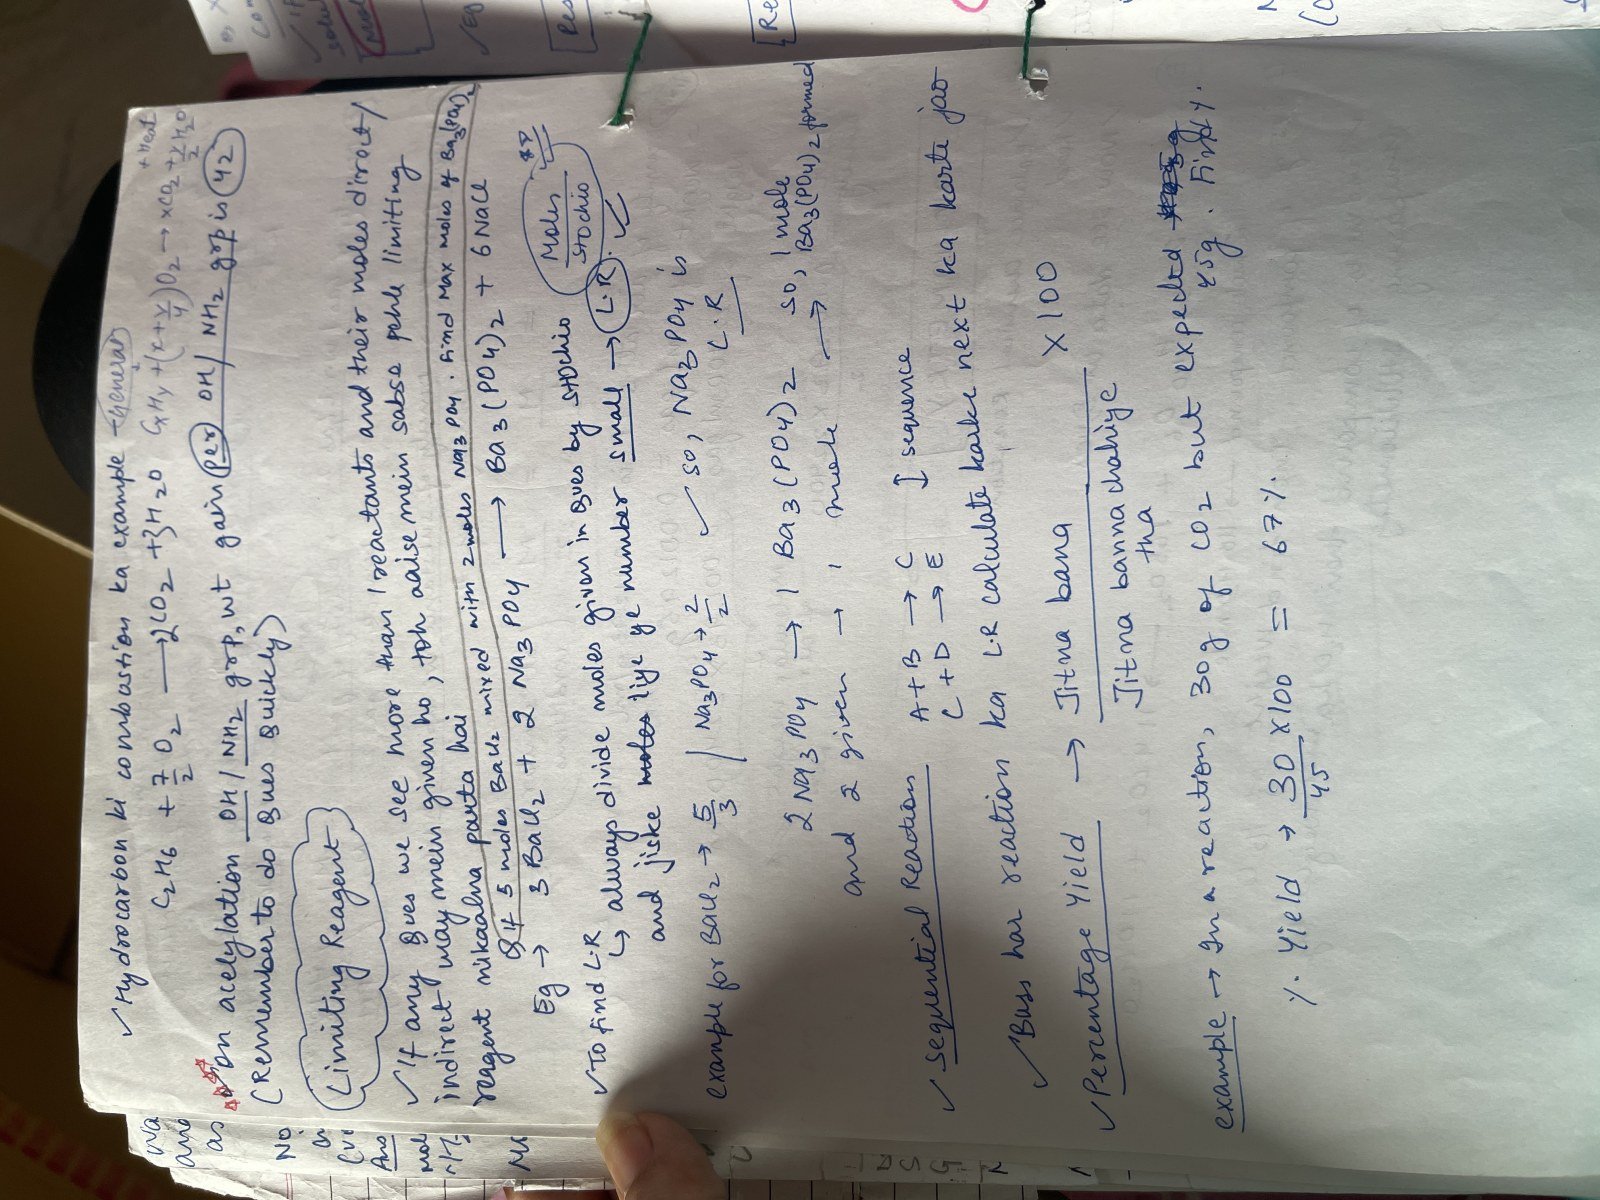 ✓ Hydrocarbon ki combustion ka example → General
C2H6 + 7/2 O2 → 2CO2 + 3H2O CxHy + (x+y/4)O2 → xCO2 + y/2 H2O + Heat
✓ On acelylation OH/NH2 grp, wt gain Per OH/NH2 grp is 42
(Remember to do Ques Quickly)
Limiting Reagent
✓ If any Ques we see more than 1 reactants and their moles direct/
indirect way mein given ho, toh aise mein sabse pehle limiting
reagent nikaalna padta hai
Q If 5 moles BaCl2 mixed with 2 moles Na3PO4. Find Max moles of Ba3(PO4)2
Eg → 3 BaCl2 + 2 Na3PO4 → Ba3(PO4)2 + 6 NaCl
✓ To find L.R
↳ always divide moles given in Ques by stochio
and jiske moles liye ye number small → L.R.
Moles/stochio
example for BaCl2 → 5/3 / Na3PO4 → 2/2 ✓ so, Na3PO4 is
L.R
2 Na3PO4 → 1 Ba3(PO4)2 so, 1 mole
and 2 given → 1 mole → Ba3(PO4)2 formed
✓ Sequential Reaction A + B → C
C + D → E ] sequence
✓ Bass har reaction ka L.R calculate karke next ka karte jao
✓ Percentage Yield → Jitna bana / Jitna banna chahiye tha × 100
example → In a reaction, 30g of CO2 but expected
45g. Find y.
%. Yield → 30/45 × 100 = 67 %.
Wa
ane
as
NO
Ans
mol